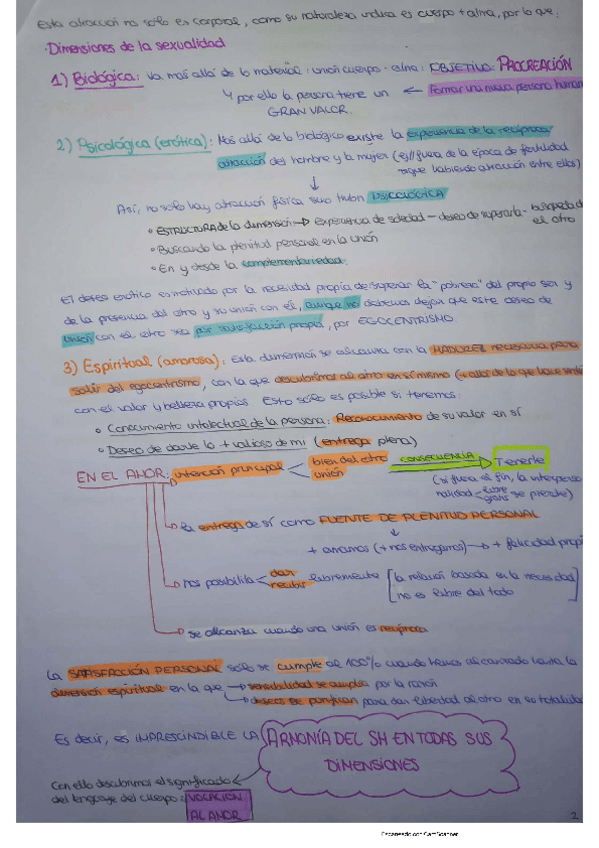 Esta atracción no sólo es corporal, como su naturaleza indica es cuerpo + alma, por lo que:
· Dimensiones de la sexualidad
1) Biológica: Va más allá de lo material: unión cuerpo - alma: OBJETIVO: PROCREACIÓN
Y por ello la persona tiene un ← Formar una nueva persona human
GRAN VALOR.
2) Psicológica (erótica): Más allá de lo biológico existe la experiencia de la recíproca
atracción del hombre y la mujer (ej// fuera de la época de fertilidad
sigue habiendo atracción entre ellos)
↓
Así, no sólo hay atracción física sino tmbn PSICOLÓGICA
• ESTRUCTURA de la dimensión → experiencia de soledad - deseo de superarla - búsqueda de
el otro
• Buscando la plenitud personal en la unión
• En y desde la complementariedad.
El deseo erótico es motivado por la necesidad propia de superar la "pobreza" del propio ser y
de la presencia del otro y su unión con él, aunque no debemos dejar que este deseo de
unión con el otro sea por satisfacción propia, por EGOCENTRISMO.
3) Espiritual (amorosa): Esta dimensión se alcanza con la MADUREZ necesaria para
salir del egocentrismo, con la que descubrimos al otro en sí mismo (+ allá de lo que hace sentir
con el valor y belleza propios. Esto sólo es posible si tenemos:
• Conocimiento intelectual de la persona: Reconocimiento de su valor en sí
• Deseo de darle lo + valioso de mi (entrega plena)
EN EL AMOR: intención principal < bien del otro CONSECUENCIA → Tenerle
unión
(si fuera el fin, la interperso
nalidad - libre
gratis se pierde)
→ la entrega de sí como FUENTE DE PLENITUD PERSONAL
↓
+ amamos (+ nos entregamos) → + felicidad propia
→ nos posibilita < dar libremente [la relación basada en la necesidad]
recibir [no es libre del todo]
→ se alcanza cuando una unión es recíproca
La SATISFACCIÓN PERSONAL sólo se cumple al 100% cuando hemos alcanzado hasta la
dimensión espiritual en la que → sensibilidad se amplía por la razón
→ deseos se purifican para dar libertad al otro en su totalidad
Es decir, es IMPRESCINDIBLE LA ARMONÍA DEL SH EN TODAS SUS
DIMENSIONES
Con ello descubrimos el significado ←
del lenguaje del cuerpo: VOCACIÓN
AL AMOR
2
Escaneado con CamScanner